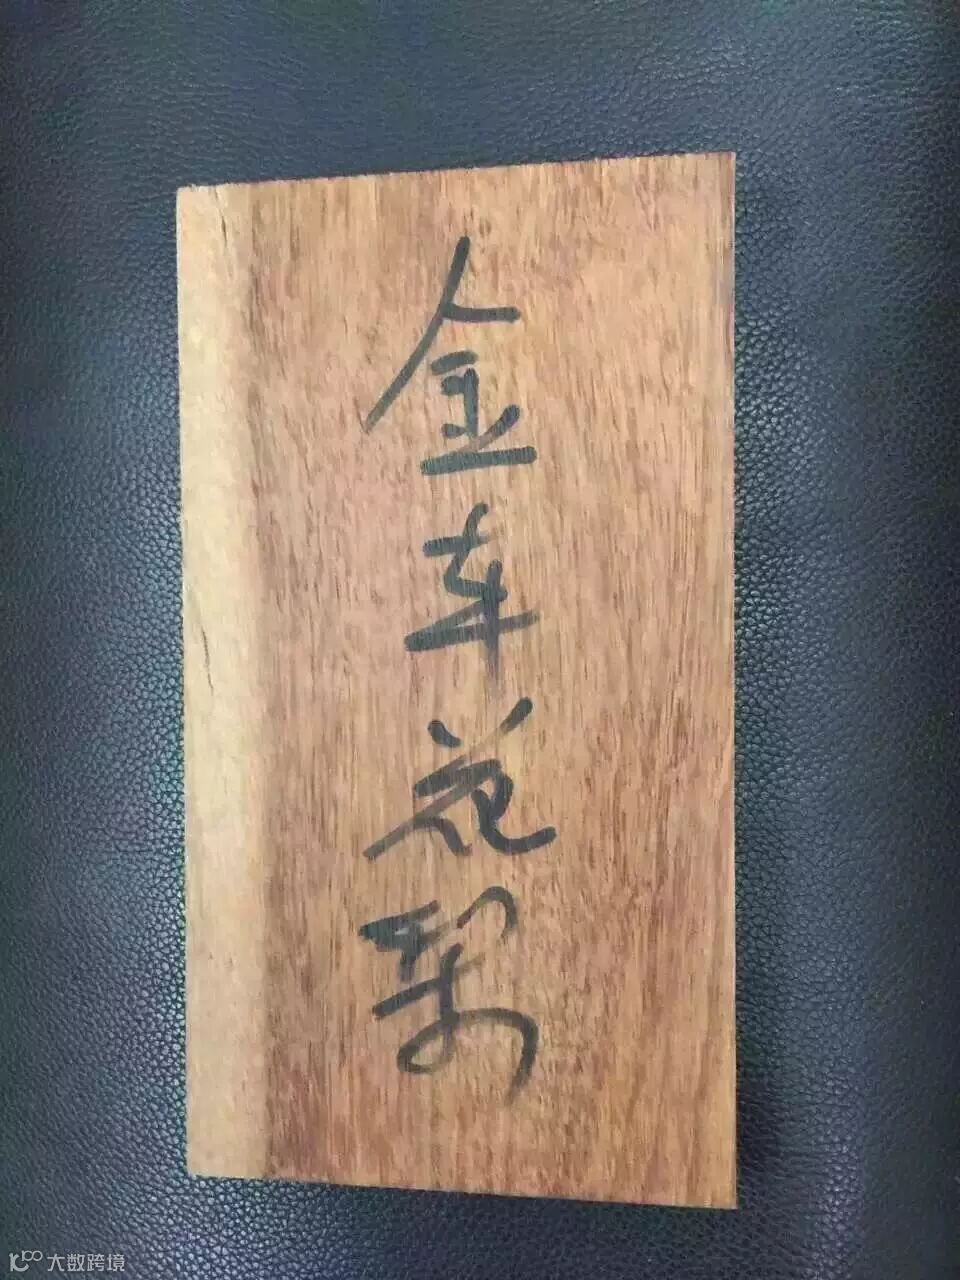 金车花梨
大数跨境